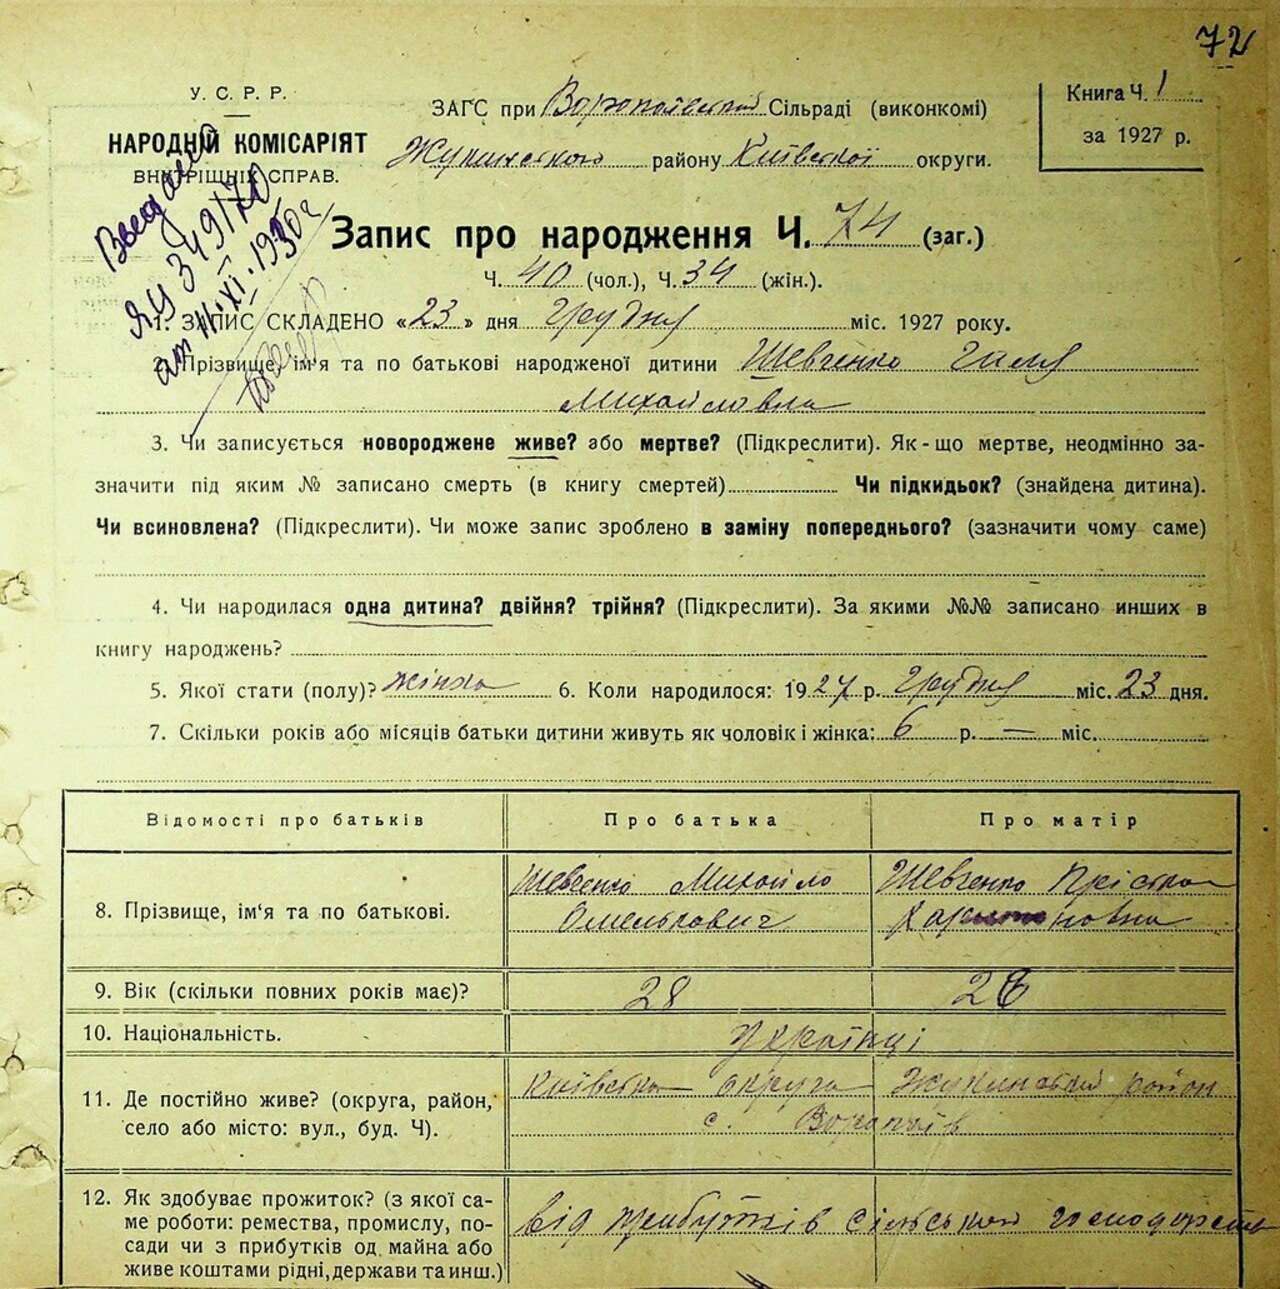 72
У. С. Р. Р.
НАРОДНІЙ КОМІСАРІЯТ
ВНУТРІШНІХ СПРАВ.
ЗАГС при Воропаївській Сільраді (виконкомі)
Жукинського району Київської округи.
Книга Ч. 1
за 1927 р.
ЯЦ 349170
11.XI.1950 г
Запис про народження Ч. 74 (заг.)
Ч. 40 (чол.), Ч. 34 (жін.).
1. ЗАПИС СКЛАДЕНО «23» дня Грудня міс. 1927 року.
2. Прізвище, ім'я та по батькові народженої дитини Шевченко Галя
Михайловна
3. Чи записується новороджене живе? або мертве? (Підкреслити). Як-що мертве, неодмінно за-
значити під яким № записано смерть (в книгу смертей) Чи підкидьок? (знайдена дитина).
Чи всиновлена? (Підкреслити). Чи може запис зроблено в заміну попереднього? (зазначити чому саме)
4. Чи народилася одна дитина? двійня? трійня? (Підкреслити). За якими №№ записано инших в
книгу народжень?
5. Якої стати (полу)? жінка 6. Коли народилося: 1927 р. Грудня міс. 23 дня.
7. Скільки років або місяців батьки дитини живуть як чоловік і жінка: 6 р. — міс.
Відомості про батьків Про батька Про матір
8. Прізвище, ім'я та по батькові. Шевченко Михайло Омелькович Шевченко Прісtка Харитоновна
9. Вік (скільки повних років має)? 28 28
10. Національність. Українці
11. Де постійно живе? (округа, район,
село або місто: вул., буд. Ч). Київська округа Жукинський район
с. Воропаїв
12. Як здобуває прожиток? (з якої са-
ме роботи: ремества, промислу, по-
сади чи з прибутків од майна або
живе коштами рідні, держави та инш.) від прибутків сільського господарства